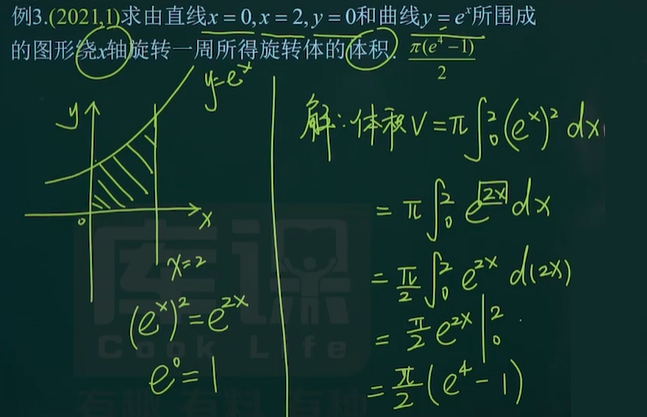 例3.(2021,1)求由直线x=0,x=2,y=0和曲线y=eˣ所围成
的图形绕x轴旋转一周所得旋转体的体积. π(e⁴−1)/2
y=eˣ
y
0
x
x=2
(eˣ)²=e²ˣ
e⁰=1
解:体积V=π∫₀²(eˣ)²dx
=π∫₀²e²ˣdx
=π/2∫₀²e²ˣd(2x)
=π/2e²ˣ|₀²
=π/2(e⁴−1)
库课
Cook Life